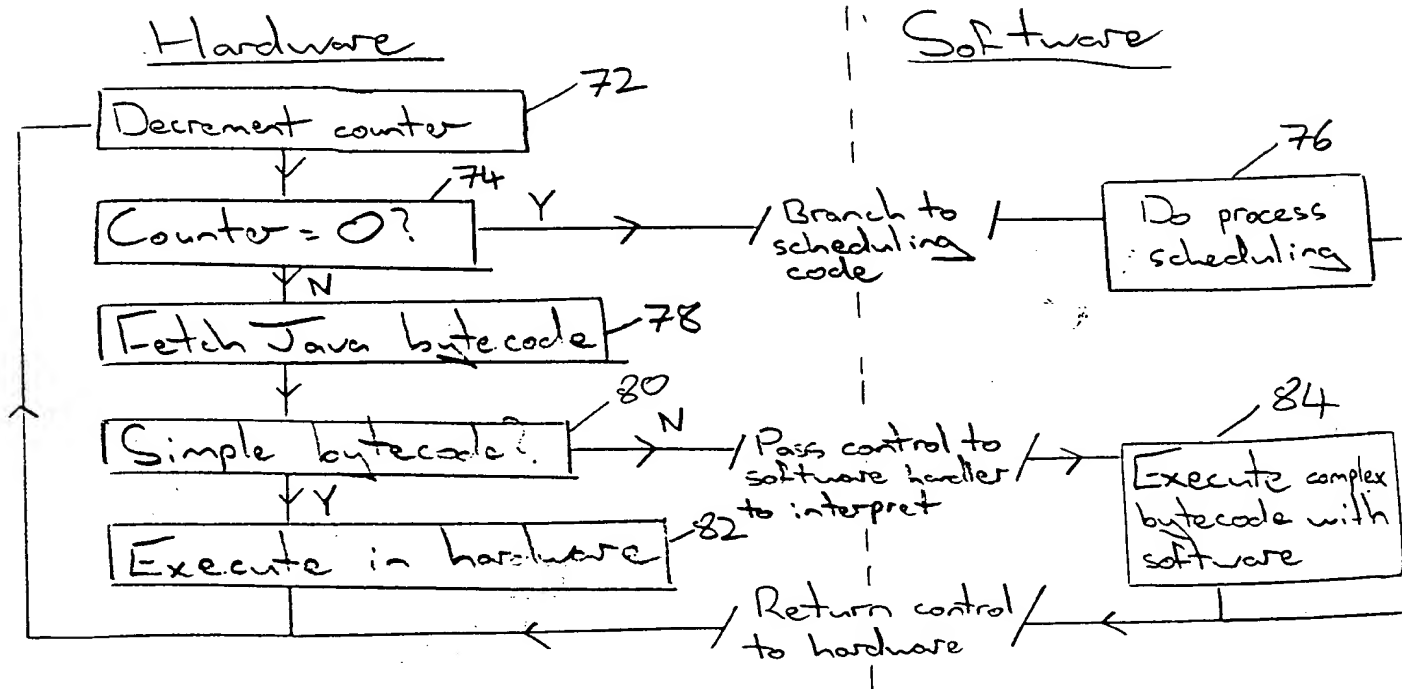 Hardware
Software
Decrement counter
72
Counter = 0?
74
Y
Branch to
scheduling
code
Do process
scheduling
76
N
Fetch Java bytecode
78
Simple bytecode?
80
N
Pass control to
software handler
to interpret
Execute complex
bytecode with
software
84
Y
Execute in hardware
82
Return control
to hardware